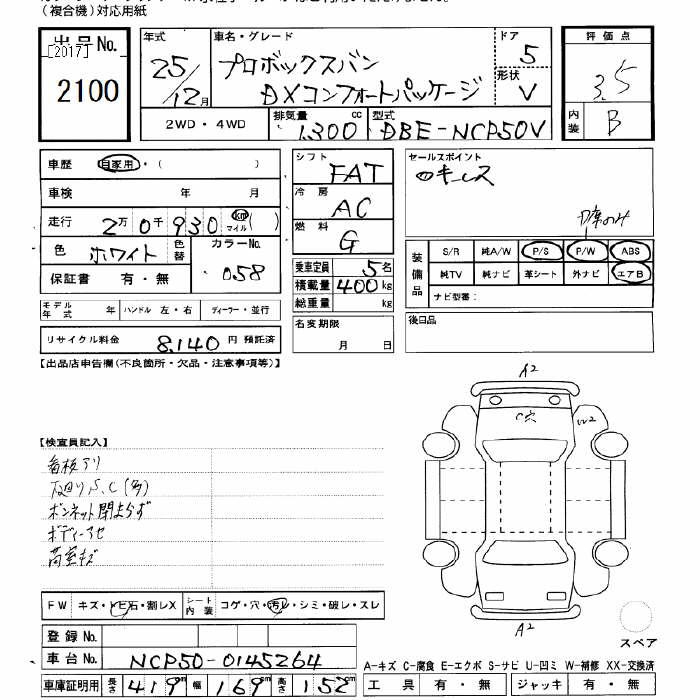 (複合機)対応用紙
出品No. [2017] 2100
年式 25/12月
車名・グレード プロボックスバン DXコンフォートパッケージ
ドア 5
形状 V
評価点 3.5
内装 B
2WD・4WD
排気量 1.300 cc
型式 DBE-NCP50V
車歴 自家用・( )
車検 年 月
走行 2万0千930 km マイル( )
色 ホワイト 色替 カラーNo. 058
保証書 有・無
モデル年式 年 ハンドル 左・右 ディーラー・並行
リサイクル料金 8,140円 預託済
シフト FAT
冷房 AC
燃料 G
乗車定員 5名
積載量 400kg
総重量 kg
名変期限 月 日
セールスポイント
キーレス
のみ
装備品 S/R 純A/W P/S P/W ABS
純TV 純ナビ 革シート 外ナビ エアB
ナビ型番:
後日品
【出品店申告欄(不良箇所・欠品・注意事項等)】
【検査員記入】
看板アリ
S、C(多)
ボンネット閉まらず
ボディーアセ
荷室キズ
A2
C穴
W2
A2
スペア
FW キズ・トビ石・割レX シート内装 コゲ・穴・汚レ・シミ・破レ・スレ
登録No.
車台No. NCP50-0145264
車庫証明用 長さ 419cm 幅 169cm 高さ 152cm
A-キズ C-腐食 E-エクボ S-サビ U-凹ミ W-補修 XX-交換済
工具 有・無 ジャッキ 有・無